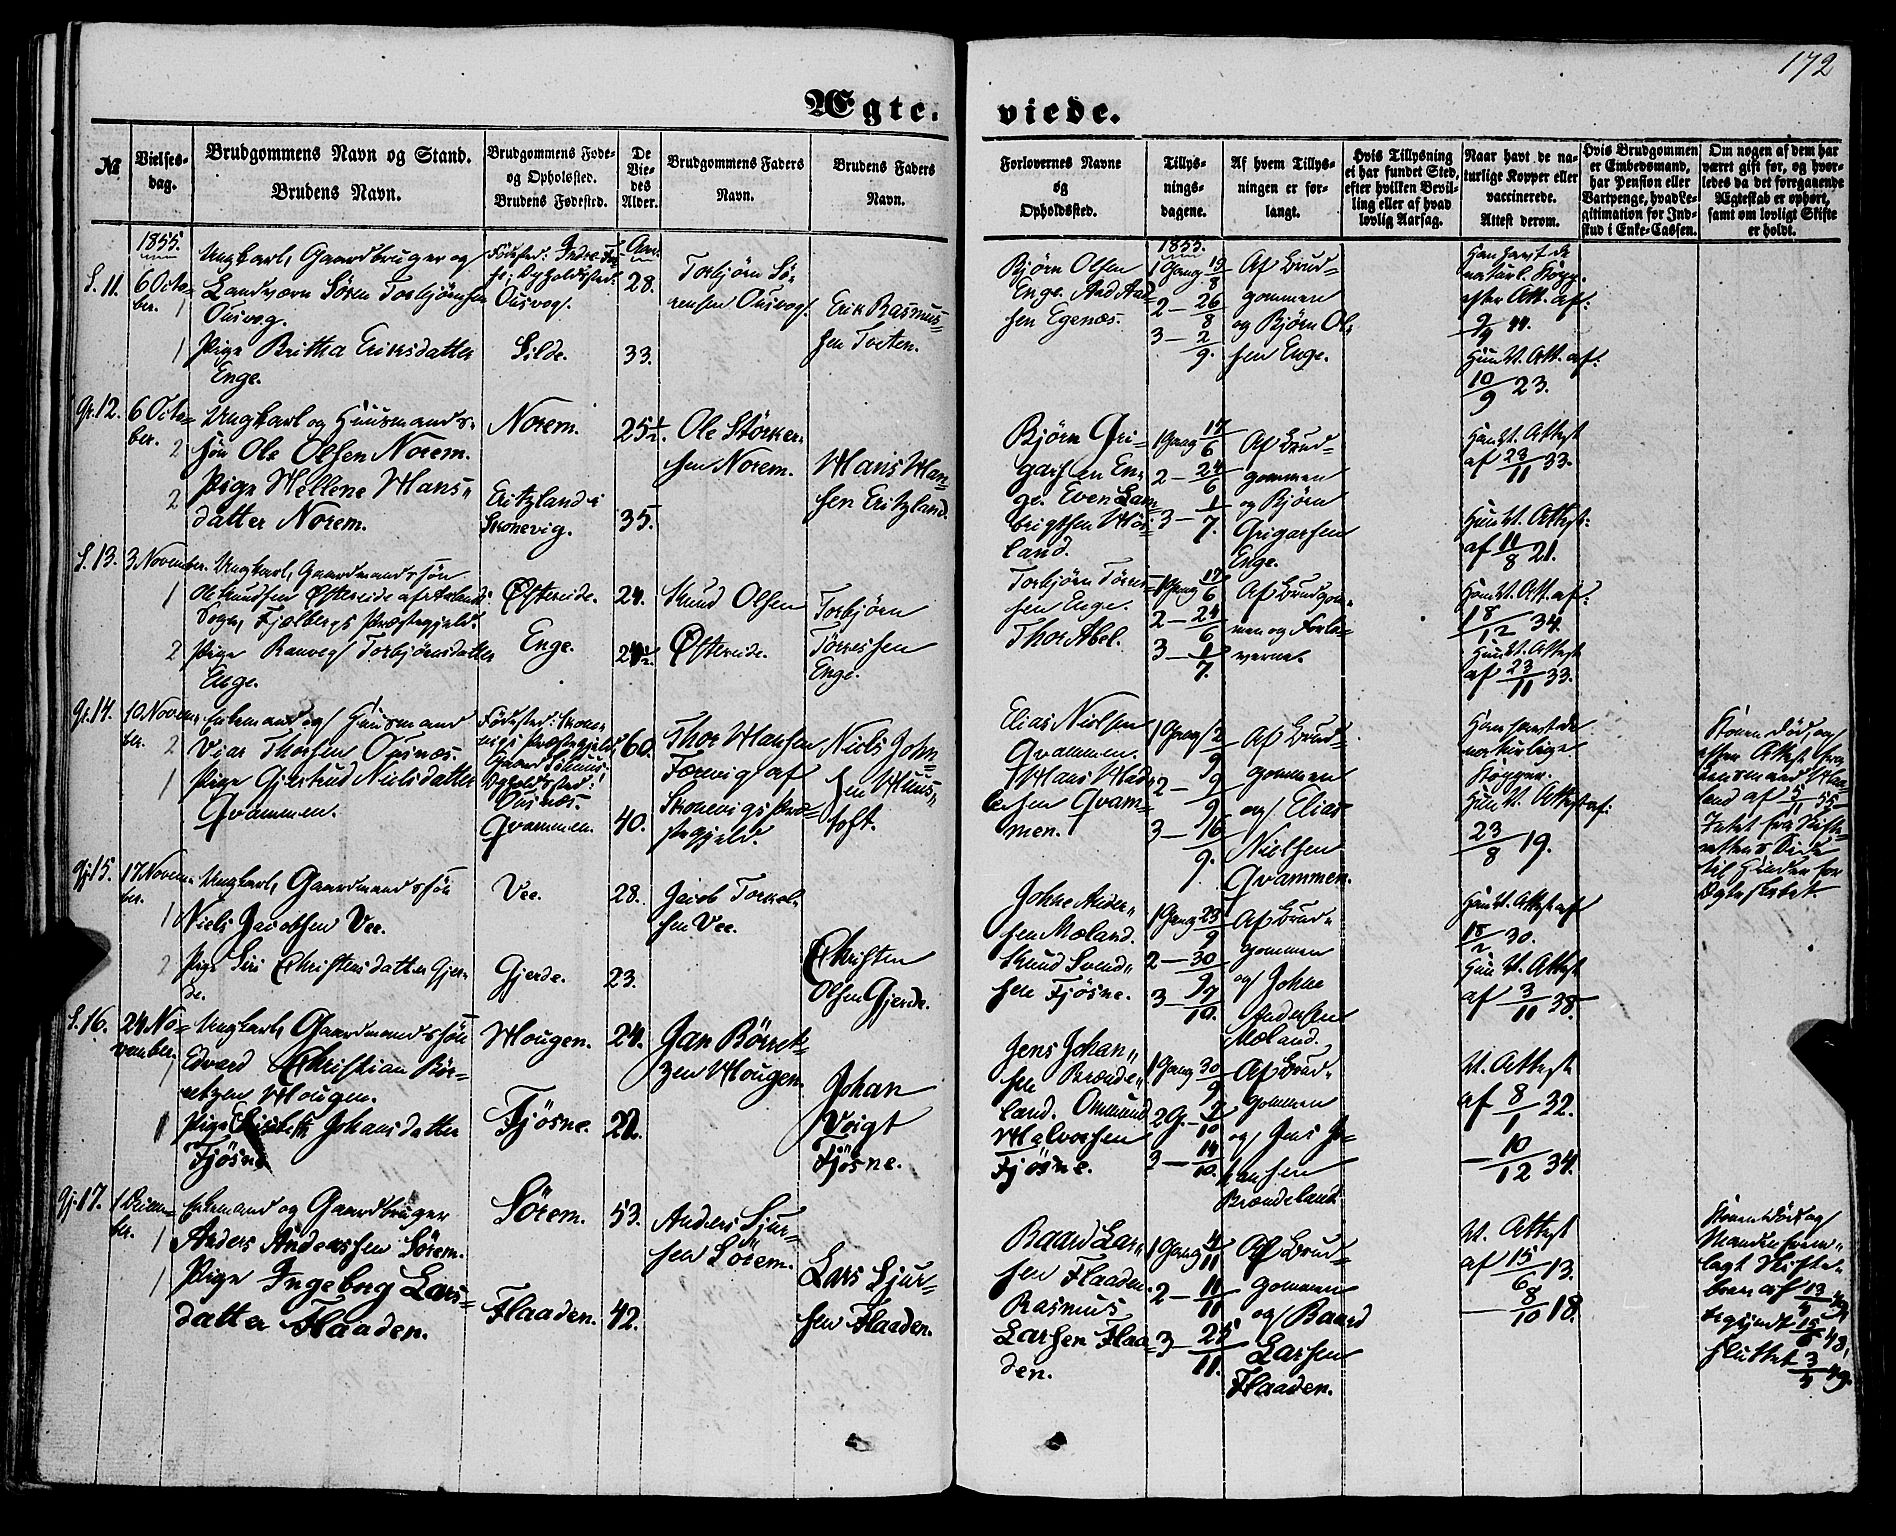 172
Ægte-
viede.
№
Vielses-
dag.
Brudgommens Navn og Stand.
Brudens Navn.
Brudgommens Føde-
og Opholdssted.
Brudens Fødested.
De
Vie-
des
Alder.
Brudgommens Faders
Navn.
Brudens Faders
Navn.
Forlovernes Navne
og
Opholdssted.
Tillys-
nings-
dagene.
Af hvem Tillys-
ningen er for-
langt.
Hvis Tillysning
ei har fundet Sted,
efter hvilken Bevil-
ling eller af hvad
lovlig Aarsag.
Naar havt de na-
turlige Kopper eller
vaccinerede.
Attest derom.
Hvis Brudgommen
er Embedsmand,
har Pension eller
Vartpenge, hvad Le-
gitimation for Ind-
skud i Enke-Cassen.
Om nogen af dem har
været gift før, og hvor-
ledes da det foregaaende
Ægteskab er ophørt,
samt om lovligt Skifte
er holdt.
1855.
S. 11.
6 Octo-
ber.
1
Ungkarl, Gaardbruger og
Landværn Søren Torbjørnsen
Ousvog.
1
Pige Brittha Eriksdatter
Enge.
Ousvog.
Silde.
28.
33.
Torbjørn Sø-
rensen Ousvog.
Erik Rasmus-
sen Tveten.
Bjørn Olsen
Enge. Aad Aad-
sen Egenæs.
1855.
1 Gang 19/8
2 — 26/8
3 — 2/9.
Af Brud-
gommen
og Bjørn Ol-
sen Enge.
Han havt de
naturl. Kopp.
efter Att. af:
Hun V. Att. af:
10/9 23.
Gr. 12.
6 Octo-
ber.
2
Ungkarl og Huusmands-
søn Ole Olsen Norem.
2
Pige Hellene Hans-
datter Norem.
Norem.
Eritzland i
Skonevig.
25½
35.
Ole Størker-
sen Norem.
Hans Han-
sen Eritzland.
Bjørn Gri-
garsen En-
ge. Even Lam-
brigtsen Hov-
land.
1 Gang 17/6
2 — 24/6
3 — 1/7.
Af Brud-
gommen
og Bjørn
Grigarsen
Enge.
Han V. Attest
af 23/11 33.
Hun V. Attest:
af 11/8 21.
S. 13.
3 November.
1
Ungkarl, Gaardmandssøn
Ole Knudsen Østereide af Etne
Sogn, Fjelbergs Præstegjeld.
2
Pige Ranveg Torbjørnsdatter
Enge.
Østereide.
Enge.
24.
24½.
Knud Olsen
Østereide.
Torbjørn
Tørressen
Enge.
Torbjørn Tørres-
sen Enge.
Thor Abel.
1 Gang 17/6
2 — 24/6
3 — 1/7.
Af Brudgom-
men og Forlo-
verne.
Han V. Att. af:
18/12 34.
Hun V. Attest
af 23/11 33.
Gr. 14.
10 Novem-
ber.
2
Enkemand og Huusmand
Viar Thorsen Ousnæs.
1
Pige Gjertrud Nielsdatter
Qvammen.
Fødested: Skone-
vigs Præstegjeld,
Opholdssted:
Ousnæs.
Qvammen.
60.
40.
Thor Hansen
Færevig af
Skonevigs Præ-
stegjeld.
Niels John-
sen Huus-
toft.
Elias Nielsen
Qvammen.
Hans Hade-
lersen Qvam-
men.
1 Gang 2/9
2 — 9/9
3 — 16/9.
Af Brud-
gommen
og Elias
Nielsen
Qvammen.
Han havt de
naturlige
Kopper.
Hun V. Attest af:
23/8 19.
Konen død og
efter Attest fra
Lensmand
land af 5/11 55
Intet fra Skifte-
rettens Side
til Hinder for
Egteskabet.
Gj. 15.
17 Novem-
ber.
1
Ungkarl, Gaardmandssøn
Niels Jacobsen Vee.
2
Pige Siri Christensdatter Gjer-
de.
Vee.
Gjerde.
28.
23.
Jacob Torkel-
sen Vee.
Christen
Olsen Gjerde.
Johne Ander-
sen Mæland.
Knud Svend-
sen Fjøsne.
1 Gang 23/9
2 — 30/9
3 — 7/10.
Af Brud-
gommen
og Johne
Andersen
Mæland.
Han V. Attest af
18/2 30.
Hun V. Attest
af 3/11 38.
S. 16.
24 No-
vember.
1
Ungkarl, Gaardmandssøn
Edvard Christian Bør-
retzen Hougen.
1
Pige Elisabeth Johansdatter
Fjøsne
Hougen.
Fjøsne.
24.
22.
Jan Børret-
zen Hougen.
Johan
Voigt
Fjøsne.
Jens Johan-
sen Brænde-
land. Ommund
Halvorsen
Fjøsne.
1 Gang 30/9
2 G. — 7/10
3 — 14/10.
Af Brud-
gommen
og Jens Jo-
hansen
Brændeland.
V. Attest
af 8/1 32.
— 10/12 34.
Gj. 17.
1 Decem-
ber.
1
Enkemand og Gaardbruger
Anders Anderssen Sørem.
1
Pige Ingeborg Lars-
datter Flaaden.
Sørem.
Flaaden.
53.
42.
Anders Sjur-
sen Sørem.
Lars Sjur-
sen Flaaden.
Baard Lar-
sen Flaaden.
Rasmus
Larsen Flaa-
den.
1 Gang 4/11
2 — 11/11
3 — 25/11.
Af Brud-
gommen
og Baard
Larsen
Flaaden.
V. Attest
af 15/6 13.
— 8/10 18.
Konen død og
Manden frem-
lagt Skifte-
brev af
begyndt
sluttet